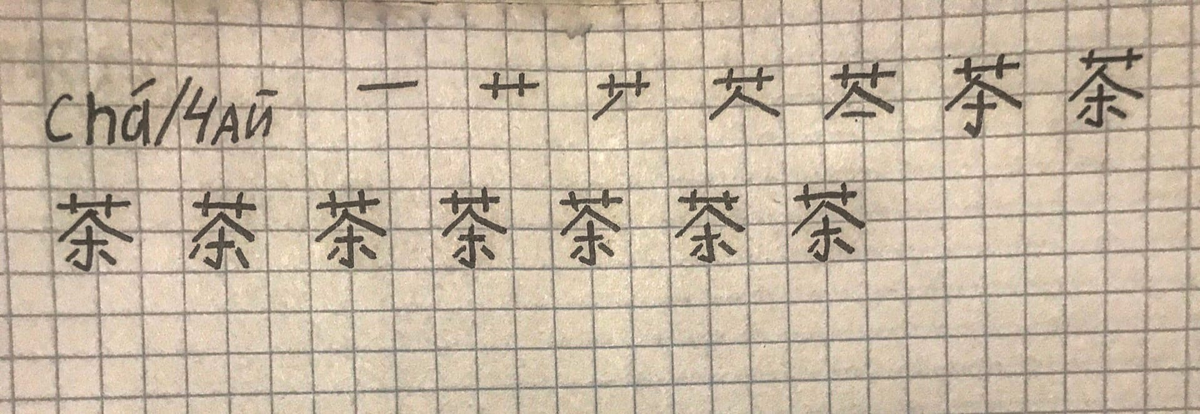 chá/чай 一 艹 茶
茶 茶 茶 茶 茶 茶 茶